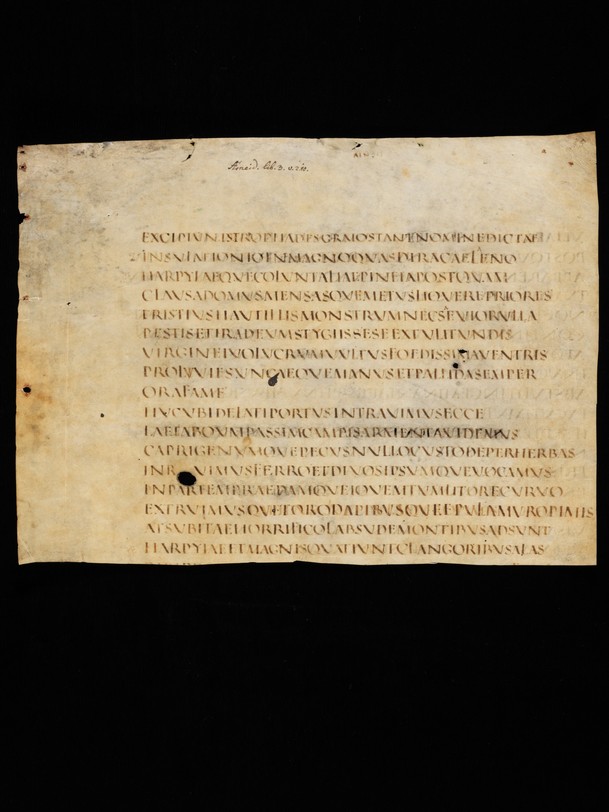 Æneid. lib. 3. v.
EXCIPIVNTSTROPHADESGRAIOSTANTNOMINEDICTAE
INSVLAEIONIOINMAGNOQVASDIRACAELENO
HARPYIAEQVECOLVNTALIAEPHINEIAPOSTQVAM
CLAVSADOMVSMENSASQVEMETVLIQVEREPRIORES
TRISTIVSHAVTILLISMONSTRVMNECSEVIORVLLA
PESTISETIRADEVMSTYGIISSESEEXTVLITVNDIS
VIRGINEIVOLVCRVMVVLTVSFOEDISSIMAVENTRIS
PROLVVIESVNCAEQVEMANVSETPALLIDASEMPER
ORAFAME
HVCVBIDELATIPORTVSINTRAVIMVSECCE
LAETABOVMPASSIMCAMPISARMENTAVIDEMVS
CAPRIGENVMQVEPECVSNVLLOCVSTODEPERHERBAS
INRVIMVSFERROETDIVOSIPSVMQVEVOCAMVS
INPARTEMPRAEDAMQVEIOVEMTVMLITORECVRVO
EXTRVIMVSQVETORODAPIBVSQVEEPVLAMVROPIMIS
ATSVBITAEHORRIFICOLABSVDEMONTIBVSADSVNT
HARPYIAEETMAGNISQVATIVNTCLANGORIBVSALAS